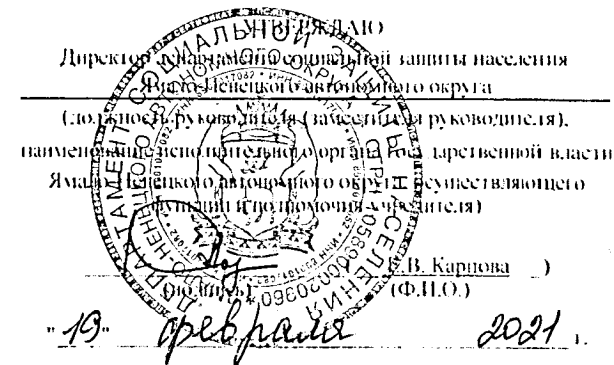 УТВЕРЖДАЮ
Директор департамента социальной защиты населения
Ямало-Ненецкого автономного округа
(должность руководителя (заместителя руководителя),
наименование исполнительного органа государственной власти
Ямало-Ненецкого автономного округа, осуществляющего
функции и полномочия учредителя)
Е.В. Карпова )
(подпись) (Ф.И.О.)
"19" февраля 2021 г.
ДЕПАРТАМЕНТ СОЦИАЛЬНОЙ ЗАЩИТЫ НАСЕЛЕНИЯ
ЯМАЛО-НЕНЕЦКОГО АВТОНОМНОГО ОКРУГА